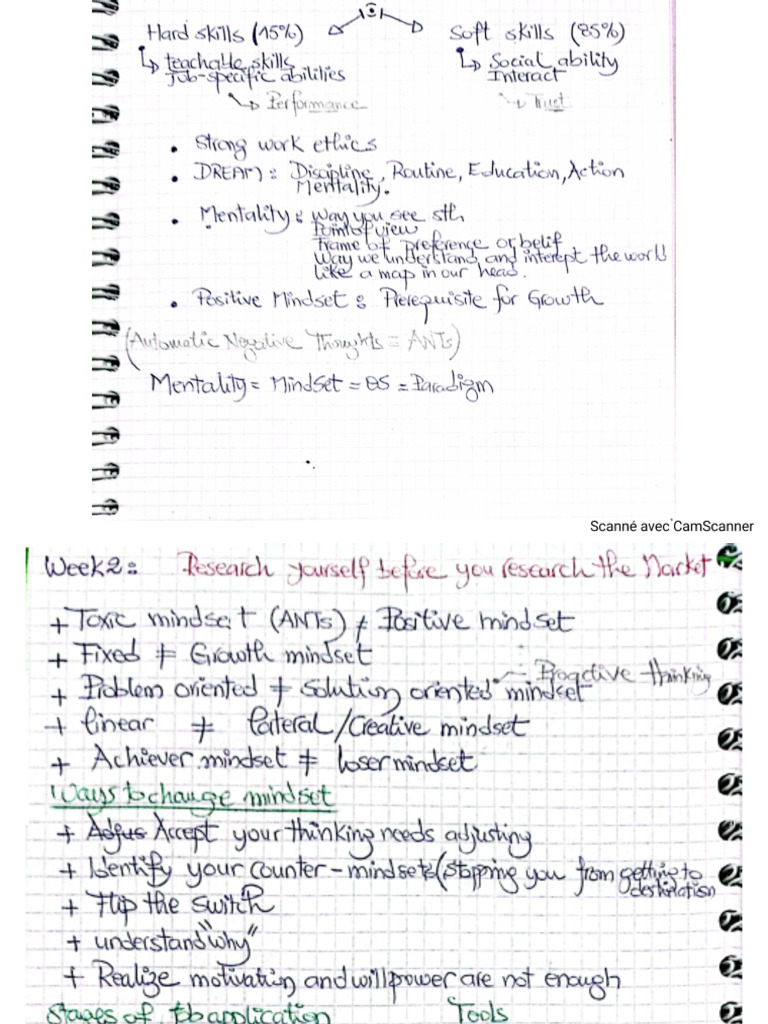 Hard skills (15%) Soft skills (85%)
teachable skills Social ability
Job-specific abilities Interact
Performance Trust
• Strong work ethics
• DREAM: Discipline, Routine, Education, Action
Mentality.
• Mentality: Way you see sth
Point of view
Frame of preference or belif
Way we understand and interept the world
like a map in our head.
• Positive Mindset: Prerequisite for Growth
(Automatic Negative Thoughts = ANTs)
Mentality = MindSet = = Paradigm
Scanné avec CamScanner
Week 2: Research yourself before you research the Market
+ Toxic mindset (ANTs) ≠ Positive mindset
+ Fixed ≠ Growth mindset
+ Problem oriented ≠ Solution oriented mindset Proactive thinking
+ linear ≠ lateral/Creative mindset
+ Achiever mindset ≠ loser mindset
Ways to change mindset
+ Accept your thinking needs adjusting
+ Identify your counter-mindsets (stopping you from getting to
destination
+ Flip the switch
+ understand "why"
+ Realize motivation and willpower are not enough
Stages of Job application Tools